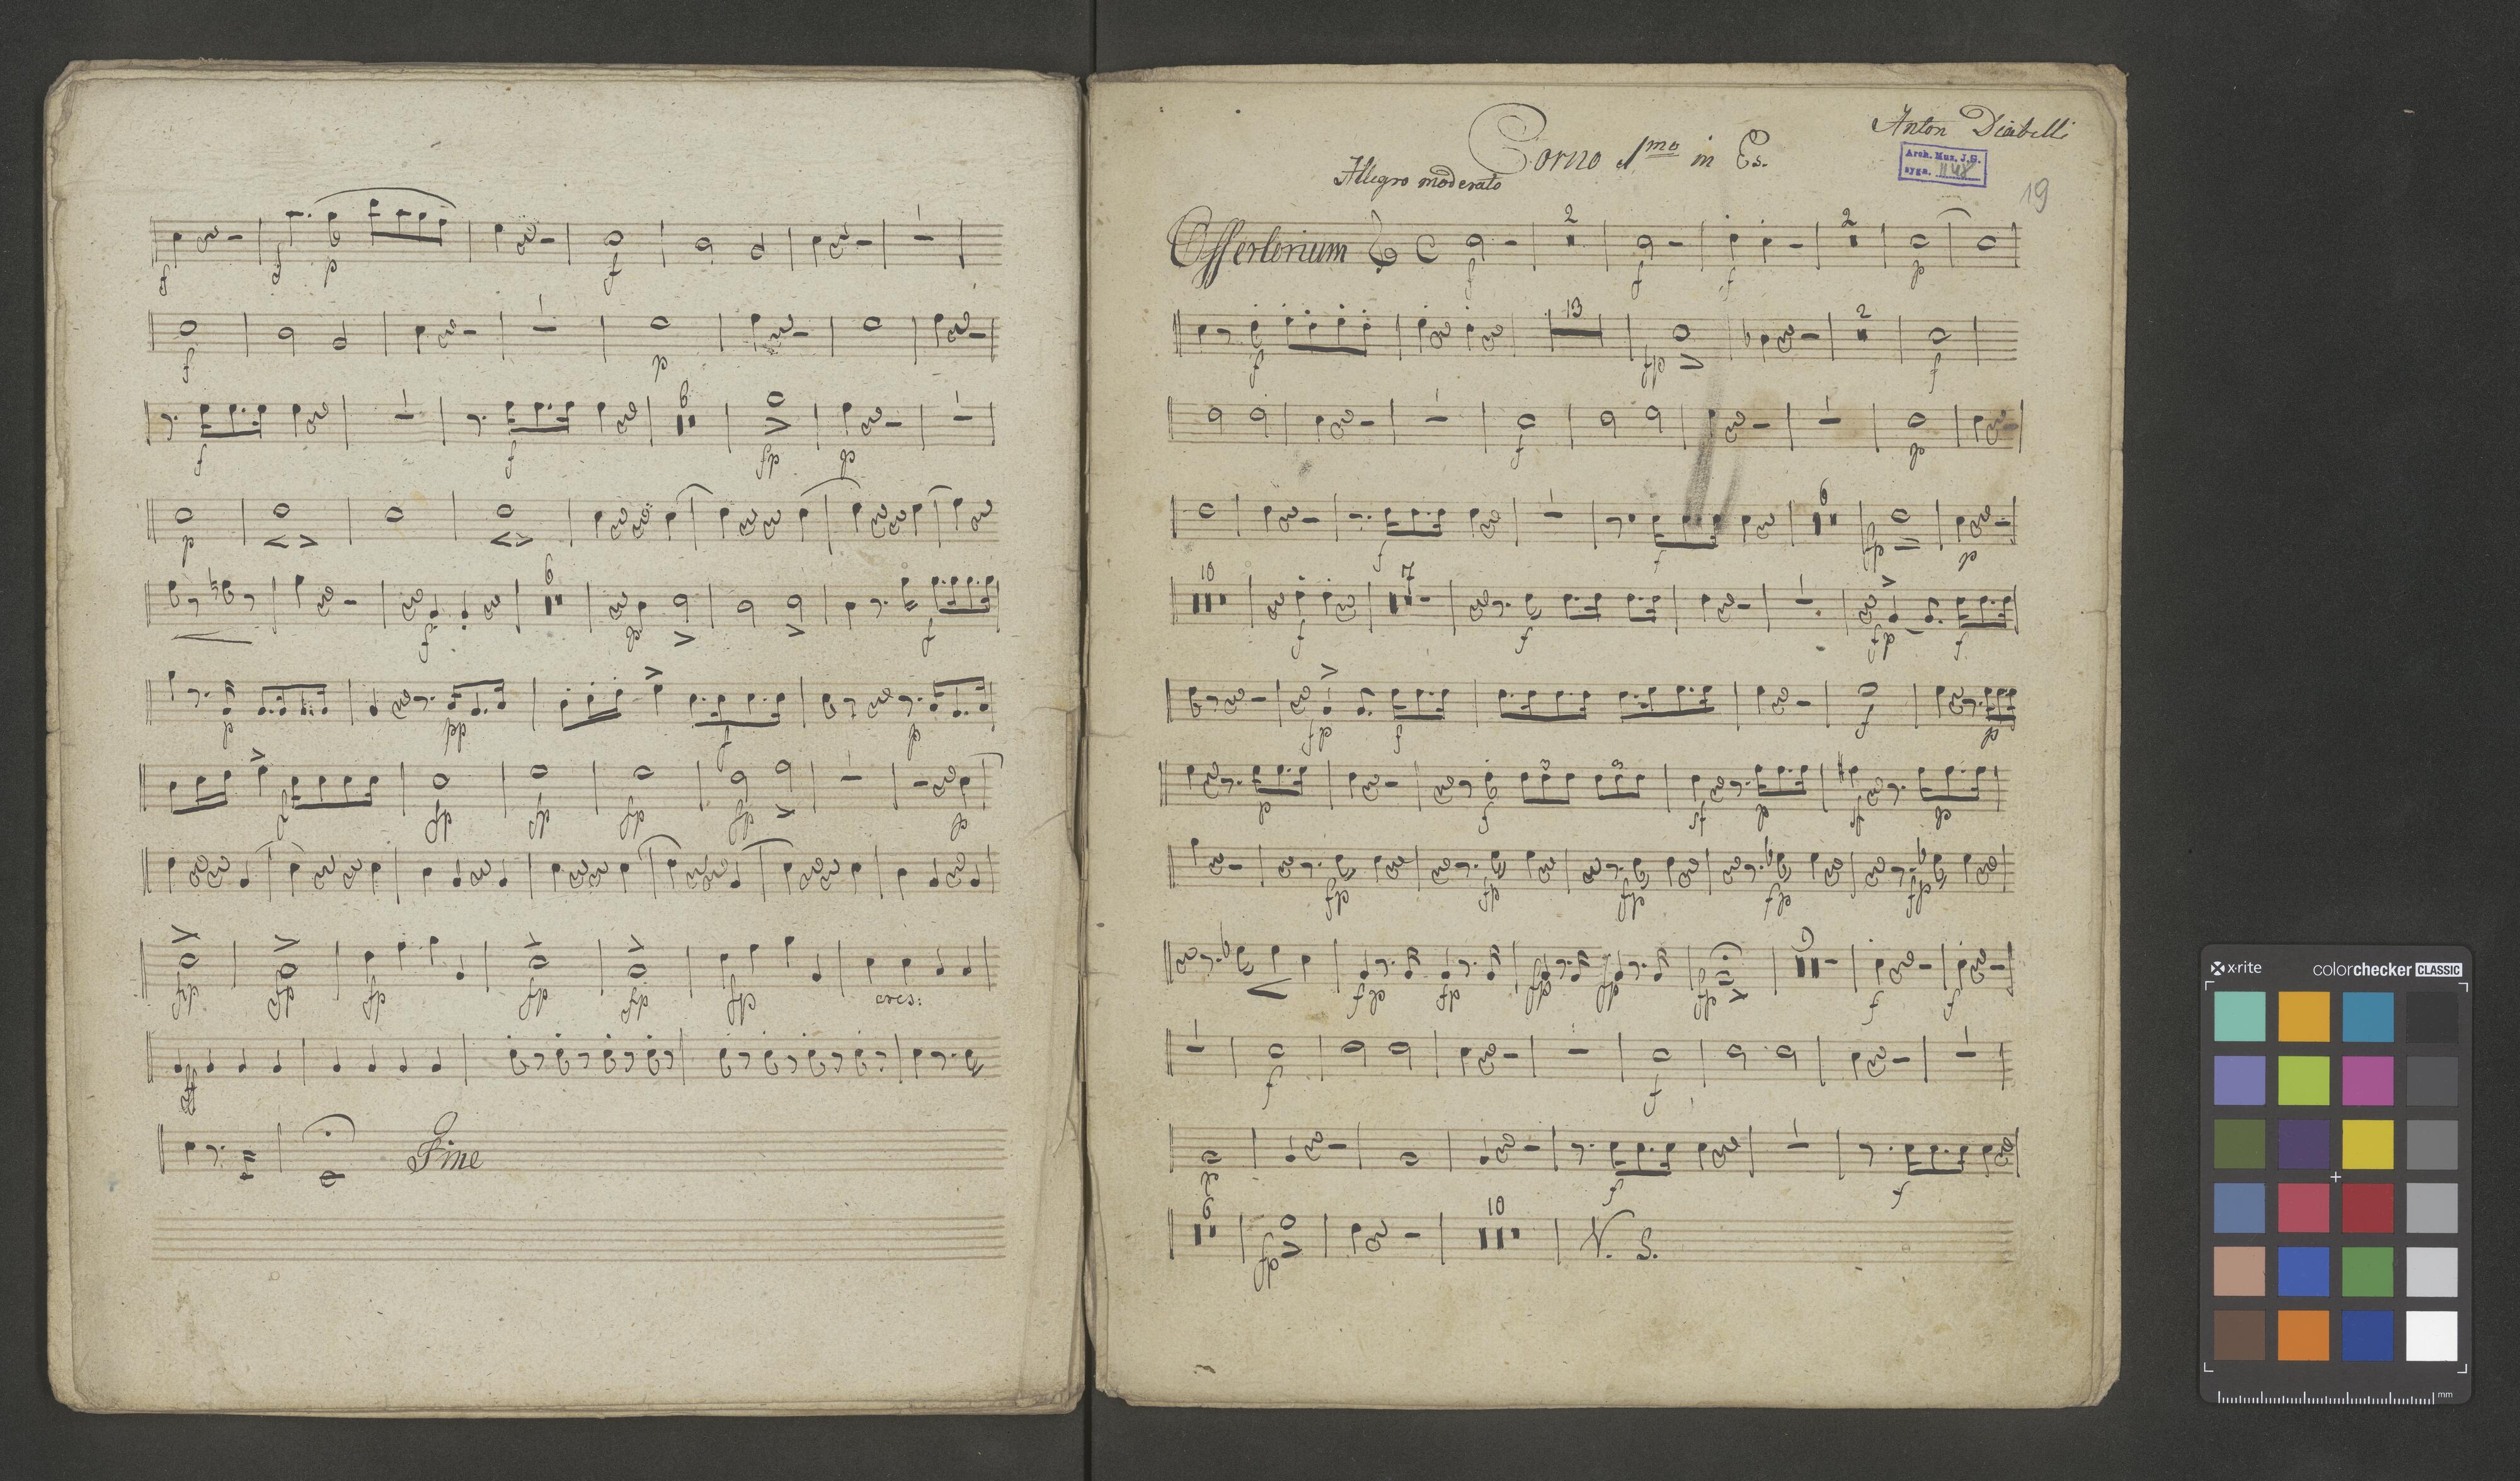 f f p f
f p
f f 6 fp p
p
6 f p f
p pp f p
f fp fp fp fp p
fp fp fp fp fp fp cres:
ff
Fine
Anton Diabelli
Corno 1mo in Es.
Arch. Muz. J.G.
sygn. 1148
Allegro moderato
19
Offertorium C 2 2
f f f p
13 2
f fp f
f p
6
f f fp p
10 7
f f fp f
fp f f p
3 3
p f sf p sf p
fp fp fp fp fp
9
fp fp fp fp fp f f
f f
f f
6 10
fp V. S.
x-rite colorchecker CLASSIC
mm